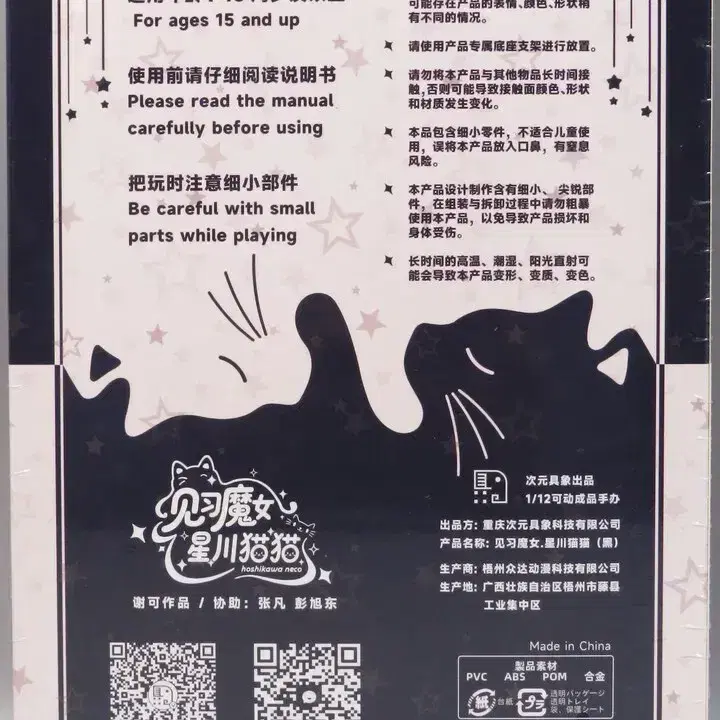 For ages 15 and up
使用前请仔细阅读说明书
Please read the manual
carefully before using
把玩时注意细小部件
Be careful with small
parts while playing
可能存在产品的表情、颜色、形状稍
有不同的情况。
请使用产品专属底座支架进行放置。
请勿将本产品与其他物品长时间接
触,否则可能导致接触面颜色、形状
和材质发生变化。
本品包含细小零件，不适合儿童使
用，误将本产品放入口鼻，有窒息
风险。
本产品设计制作含有细小、尖锐部
件，在组装与拆卸过程中请勿粗暴
使用本产品，以免导致产品损坏和
身体受伤。
长时间的高温、潮湿、阳光直射可
能会导致本产品变形、变质、变色。
见习魔女
星川猫猫
hoshikawa neco
谢可作品 / 协助：张凡 彭旭东
次元具象出品
1/12可动成品手办
出品方：重庆次元具象科技有限公司
产品名称：见习魔女.星川猫猫（黑）
生产商：梧州众达动漫科技有限公司
生产地：广西壮族自治区梧州市藤县
工业集中区
Made in China
製品素材
PVC ABS POM 合金
紙 台紙 プラ 透明パッケージ
透明トレイ
袋、保護シート